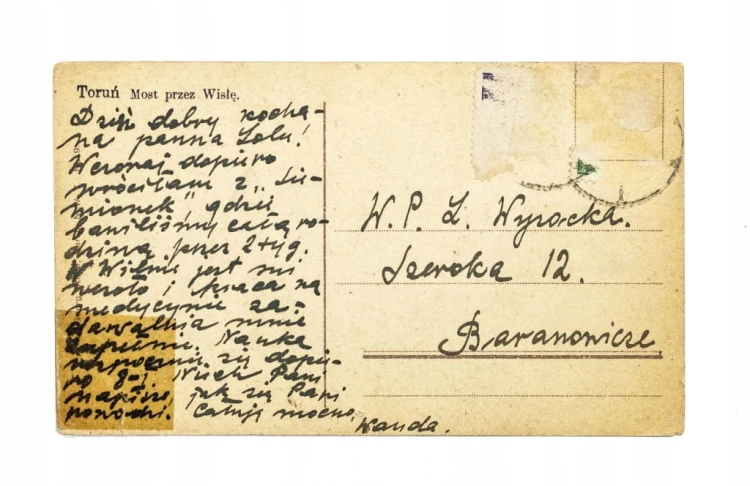 Toruń Most przez Wisłę.
Dziń dobry kocha-
na panno Lolu!
Wczoraj dopiero
wróciłam z „Sie-
mionek" gdzie
bawiliśmy całą ro-
dziną przez 2 tyg.
W Wilnie jest mi
wesoło i praca na
medycynie za-
dawalnia mnie
zupełnie. Nauka
rozpocznie się dopie-
ro 8-I. Niech Pani
napisze, jak się Pani
powodzi. Całuję mocno,
Wanda.
W. P. L. Wysocka.
Szeroka 12.
Baranowicze